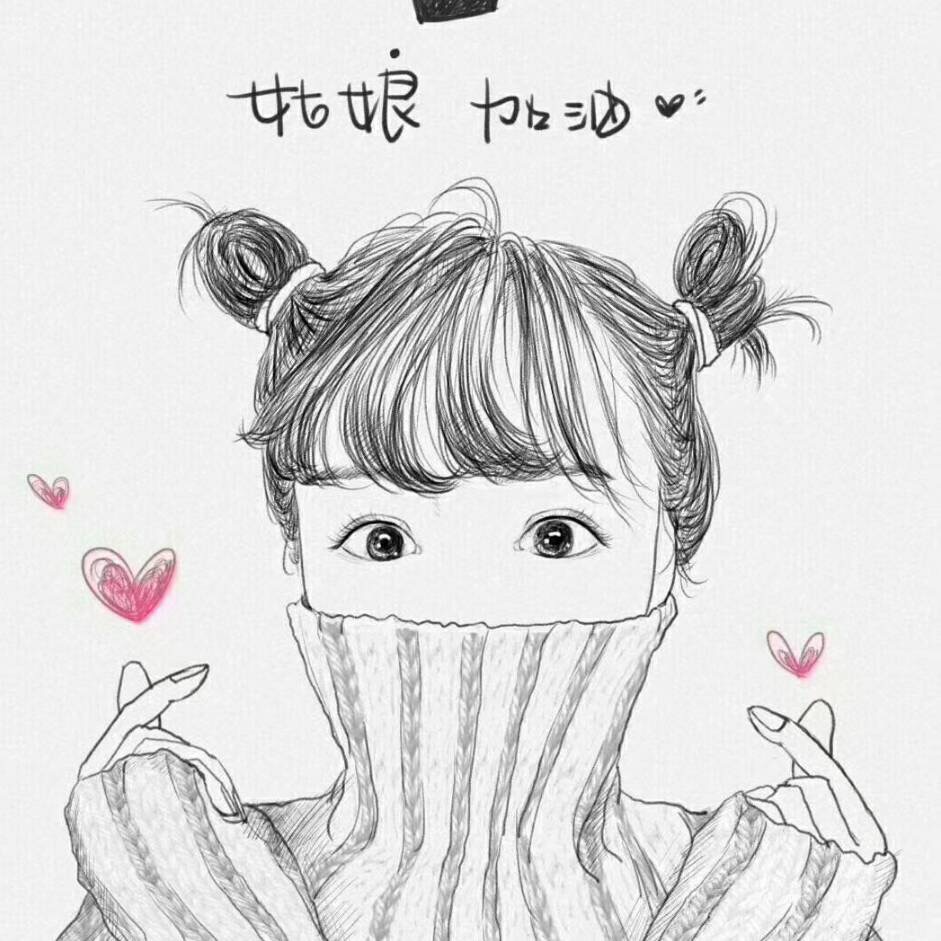 姑娘 加油